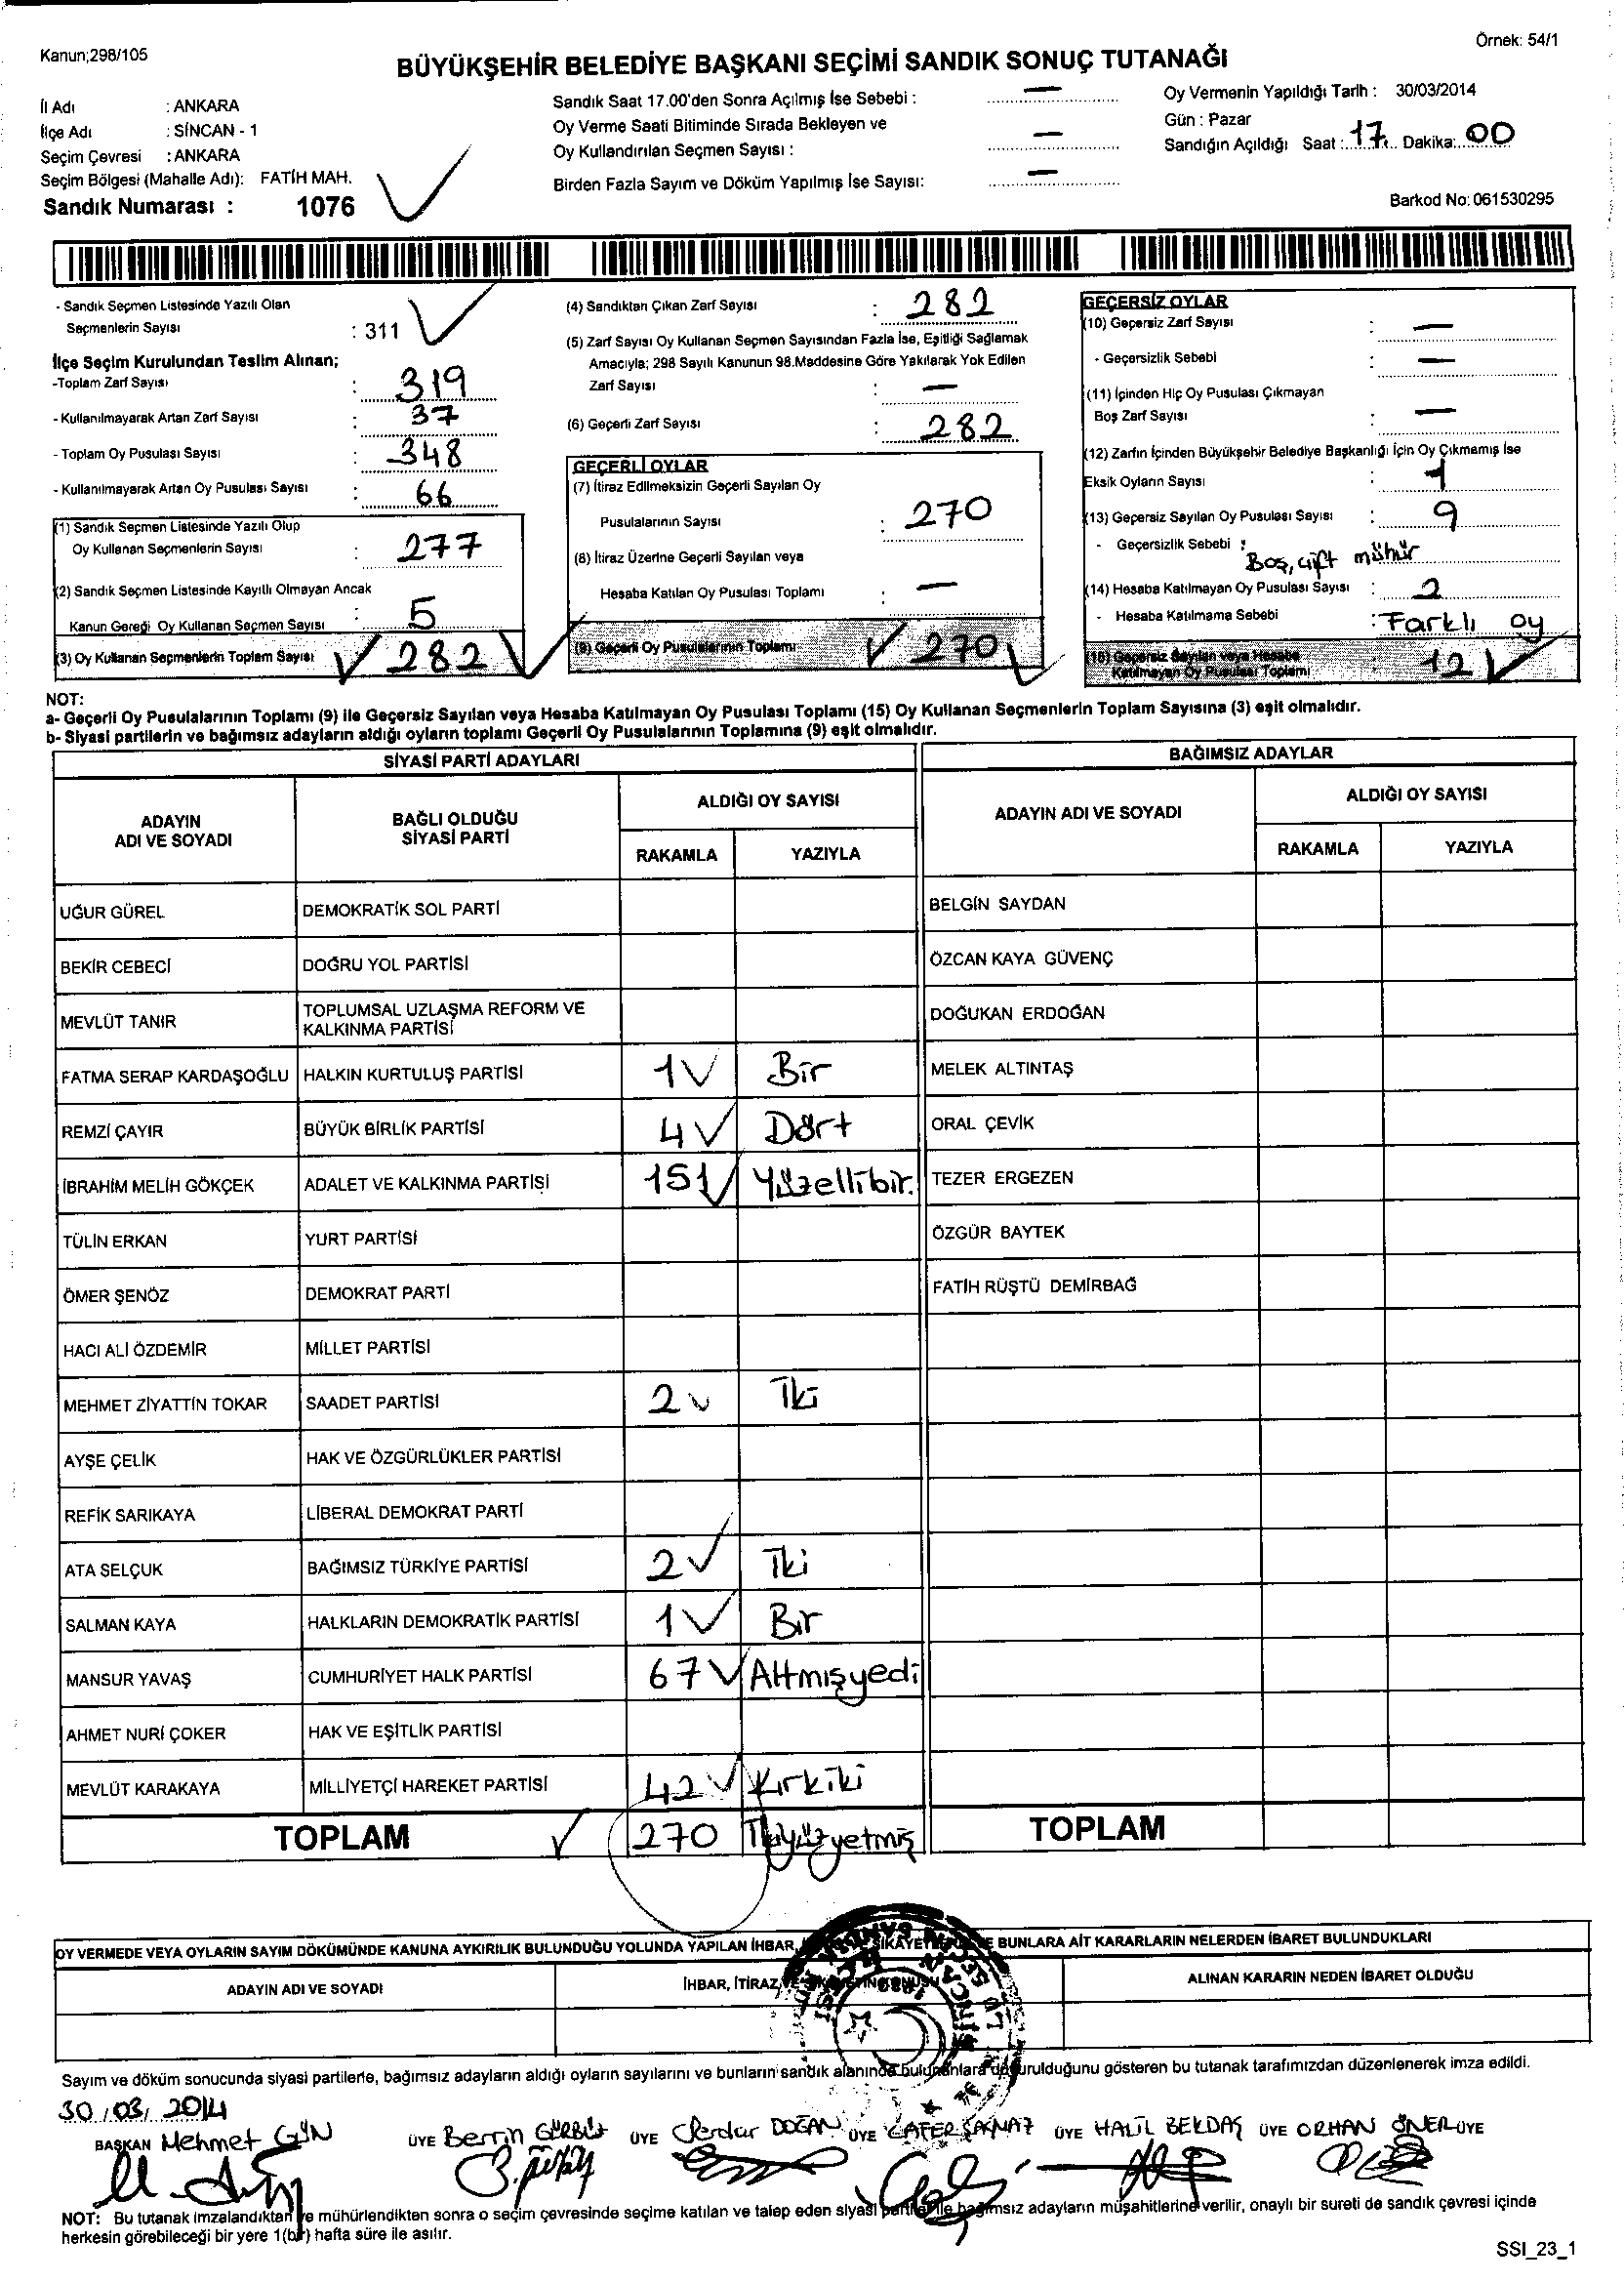 Kanun;298/105
Örnek: 54/1
BÜYÜKŞEHİR BELEDİYE BAŞKANI SEÇİMİ SANDIK SONUÇ TUTANAĞI
İl Adı : ANKARA
İlçe Adı : SİNCAN - 1
Seçim Çevresi : ANKARA
Seçim Bölgesi (Mahalle Adı): FATİH MAH.
Sandık Numarası : 1076
Sandık Saat 17.00'den Sonra Açılmış İse Sebebi : —
Oy Verme Saati Bitiminde Sırada Bekleyen ve
Oy Kullandırılan Seçmen Sayısı : —
Birden Fazla Sayım ve Döküm Yapılmış İse Sayısı: —
Oy Vermenin Yapıldığı Tarih : 30/03/2014
Gün : Pazar
Sandığın Açıldığı Saat : 17 Dakika: 00
Barkod No: 061530295
- Sandık Seçmen Listesinde Yazılı Olan
Seçmenlerin Sayısı : 311
İlçe Seçim Kurulundan Teslim Alınan;
-Toplam Zarf Sayısı : 319
- Kullanılmayarak Artan Zarf Sayısı : 37
- Toplam Oy Pusulası Sayısı : 348
- Kullanılmayarak Artan Oy Pusulası Sayısı : 66
(1) Sandık Seçmen Listesinde Yazılı Olup
Oy Kullanan Seçmenlerin Sayısı : 277
(2) Sandık Seçmen Listesinde Kayıtlı Olmayan Ancak
Kanun Gereği Oy Kullanan Seçmen Sayısı : 5
(3) Oy Kullanan Seçmenlerin Toplam Sayısı 282
(4) Sandıktan Çıkan Zarf Sayısı : 282
(5) Zarf Sayısı Oy Kullanan Seçmen Sayısından Fazla İse, Eşitliği Sağlamak
Amacıyla; 298 Sayılı Kanunun 98.Maddesine Göre Yakılarak Yok Edilen
Zarf Sayısı : —
(6) Geçerli Zarf Sayısı : 282
GEÇERLİ OYLAR
(7) İtiraz Edilmeksizin Geçerli Sayılan Oy
Pusulalarının Sayısı : 270
(8) İtiraz Üzerine Geçerli Sayılan veya
Hesaba Katılan Oy Pusulası Toplamı : —
(9) Geçerli Oy Pusulalarının Toplamı 270
GEÇERSİZ OYLAR
(10) Geçersiz Zarf Sayısı : —
- Geçersizlik Sebebi : —
(11) İçinden Hiç Oy Pusulası Çıkmayan
Boş Zarf Sayısı : —
(12) Zarfın İçinden Büyükşehir Belediye Başkanlığı İçin Oy Çıkmamış İse
Eksik Oyların Sayısı : 1
(13) Geçersiz Sayılan Oy Pusulası Sayısı : 9
- Geçersizlik Sebebi : Boş, çift mühür
(14) Hesaba Katılmayan Oy Pusulası Sayısı : 2
- Hesaba Katılmama Sebebi : Farklı oy
(15) Geçersiz Sayılan veya Hesaba
Katılmayan Oy Pusulası Toplamı 12
NOT:
a- Geçerli Oy Pusulalarının Toplamı (9) ile Geçersiz Sayılan veya Hesaba Katılmayan Oy Pusulası Toplamı (15) Oy Kullanan Seçmenlerin Toplam Sayısına (3) eşit olmalıdır.
b- Siyasi partilerin ve bağımsız adayların aldığı oyların toplamı Geçerli Oy Pusulalarının Toplamına (9) eşit olmalıdır.
SİYASİ PARTİ ADAYLARI
ADAYIN ADI VE SOYADI
BAĞLI OLDUĞU SİYASİ PARTİ
ALDIĞI OY SAYISI
RAKAMLA YAZIYLA
UĞUR GÜREL DEMOKRATİK SOL PARTİ
BEKİR CEBECİ DOĞRU YOL PARTİSİ
MEVLÜT TANIR TOPLUMSAL UZLAŞMA REFORM VE KALKINMA PARTİSİ
FATMA SERAP KARDAŞOĞLU HALKIN KURTULUŞ PARTİSİ 1 Bir
REMZİ ÇAYIR BÜYÜK BİRLİK PARTİSİ 4 Dört
İBRAHİM MELİH GÖKÇEK ADALET VE KALKINMA PARTİSİ 151 Yüzellibir.
TÜLİN ERKAN YURT PARTİSİ
ÖMER ŞENÖZ DEMOKRAT PARTİ
HACI ALİ ÖZDEMİR MİLLET PARTİSİ
MEHMET ZİYATTİN TOKAR SAADET PARTİSİ 2 İki
AYŞE ÇELİK HAK VE ÖZGÜRLÜKLER PARTİSİ
REFİK SARIKAYA LİBERAL DEMOKRAT PARTİ
ATA SELÇUK BAĞIMSIZ TÜRKİYE PARTİSİ 2 İki
SALMAN KAYA HALKLARIN DEMOKRATİK PARTİSİ 1 Bir
MANSUR YAVAŞ CUMHURİYET HALK PARTİSİ 67 Altmışyedi
AHMET NURİ ÇOKER HAK VE EŞİTLİK PARTİSİ
MEVLÜT KARAKAYA MİLLİYETÇİ HAREKET PARTİSİ 42 Kırkiki
TOPLAM 270 İkiyüzyetmiş
BAĞIMSIZ ADAYLAR
ADAYIN ADI VE SOYADI
ALDIĞI OY SAYISI
RAKAMLA YAZIYLA
BELGİN SAYDAN
ÖZCAN KAYA GÜVENÇ
DOĞUKAN ERDOĞAN
MELEK ALTINTAŞ
ORAL ÇEVİK
TEZER ERGEZEN
ÖZGÜR BAYTEK
FATİH RÜŞTÜ DEMİRBAĞ
TOPLAM
OY VERMEDE VEYA OYLARIN SAYIM DÖKÜMÜNDE KANUNA AYKIRILIK BULUNDUĞU YOLUNDA YAPILAN İHBAR, BUNLARA AİT KARARLARIN NELERDEN İBARET BULUNDUKLARI
ADAYIN ADI VE SOYADI
İHBAR, İTİRAZ
ALINAN KARARIN NEDEN İBARET OLDUĞU
Sayım ve döküm sonucunda siyasi partilerle, bağımsız adayların aldığı oyların sayılarını ve bunların sandık alanında bulunanlara duyurulduğunu gösteren bu tutanak tarafımızdan düzenlenerek imza edildi.
30/03/2014
BAŞKAN Mehmet GÜN ÜYE Berrin GÜRBÜZ ÜYE Serdar DOĞAN ÜYE CAFER ÜYE HALİL BEKDAŞ ÜYE ORHAN ÖNER ÜYE
NOT: Bu tutanak imzalandıktan ve mühürlendikten sonra o seçim çevresinde seçime katılan ve talep eden siyasi partiler ile bağımsız adayların müşahitlerine verilir, onaylı bir sureti de sandık çevresi içinde
herkesin görebileceği bir yere 1(bir) hafta süre ile asılır.
SSI_23_1